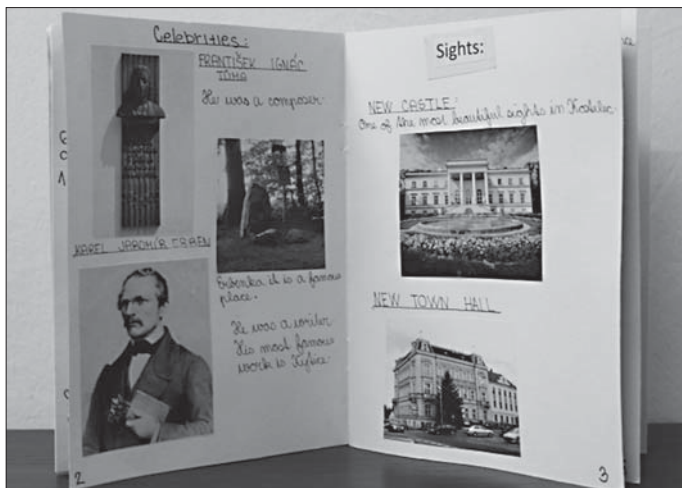 Celebrities:
FRANTIŠEK IGNÁC
TŮMA
He was a composer.
KAREL JAROMÍR ERBEN
Erbenka it is a famous
place.
He was a writer.
His most famous
work is Kytice.
2
Sights:
NEW CASTLE:
One of the most beautiful sights in Kostelec.
NEW TOWN HALL
3